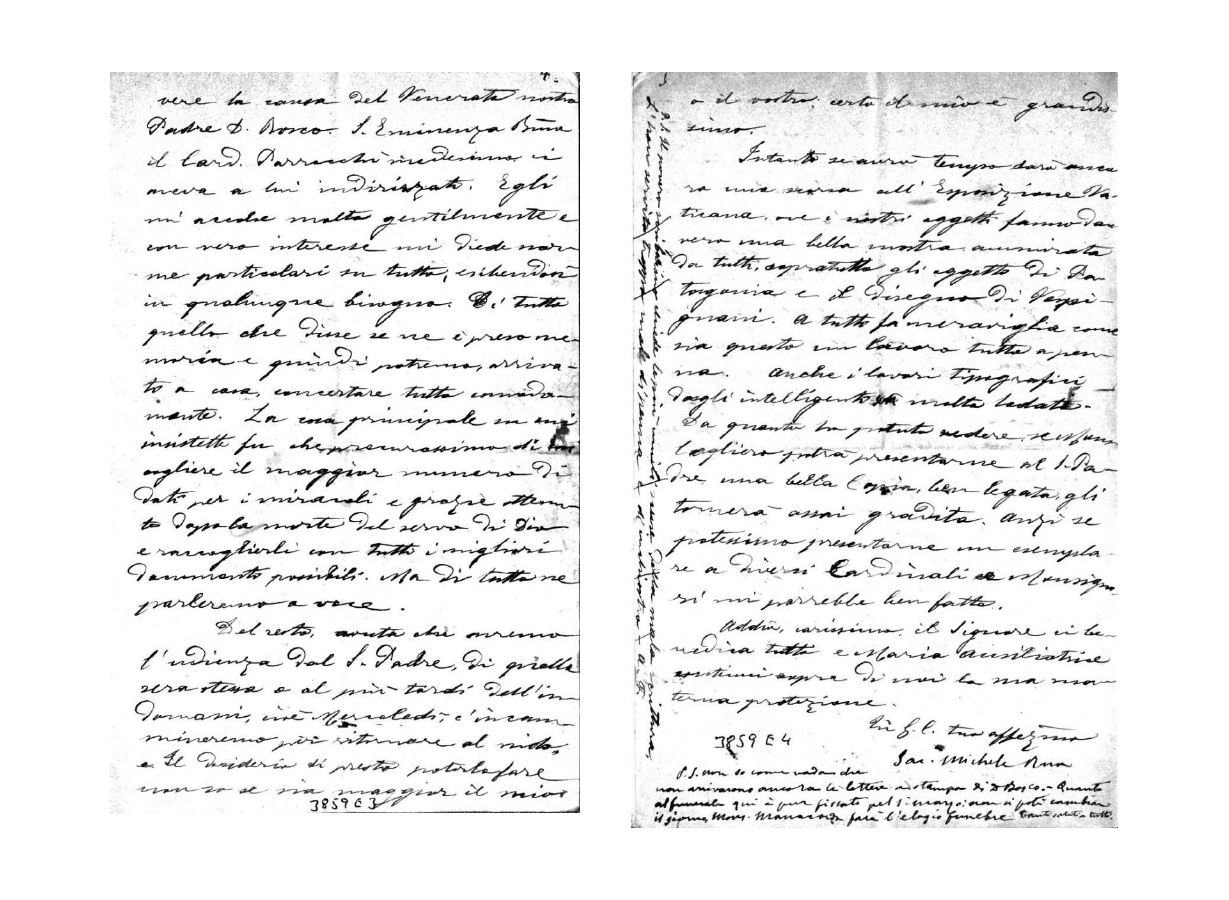 4.
vere la causa del Venerato nostro
Padre D. Bosco. S. Eminenza Rma
il Card. Parrocchi medesimo ci
aveva a lui indirizzati. Egli
mi accolse molto gentilmente e
con vero interesse mi diede nor-
me particolari su tutto, esibendosi
in qualunque bisogno. Di tutto
quello che disse se ne è preso me-
moria e quindi potremo, arriva-
to a casa, concertare tutto comoda-
mente. La cosa principale su cui
insistette fu che procurassimo di rac
cogliere il maggior numero di
dati per i miracoli e grazie ottenu
te dopo la morte del servo di Dio
e raccoglierli con tutti i migliori
documenti possibili. Ma di tutto ne
parleremo a voce.
Del resto, avuta che avremo
l'udienza dal S. Padre, di quella
sera stessa o al più tardi dell'in
domani, cioè Mercoledì, c'incam-
mineremo per ritornare al nido,
e Il desiderio di presto poterlo fare
non so se sia maggior il mio
3859 E 3
5
o il vostro: certo il mio è grandis-
simo.
Intanto se avrò tempo darò anco
ra una scorsa all'Esposizione Va-
ticana, ove i nostri oggetti fanno dav
vero una bella mostra ammirata
da tutti, sopratutto gli oggetti di Pa-
tagonia e il disegno di Vespi-
gnani. A tutti fa meraviglia come
sia questo un lavoro tutto a pen-
na. Anche i lavori tipografici
dagli intelligenti molto lodati.
Da quanto ho potuto vedere, se Mons
Cagliero potrà presentarne al S. Pa-
dre una bella Copia, ben legata, gli
tornerà assai gradita. Anzi se
potessimo presentarne un esempla-
re a diversi Cardinali e Monsigno-
ri mi parrebbe ben fatto.
Addio, carissimo, il Signore ci be-
nedica tutti e Maria Ausiliatrice
continui sopra di noi la sua ma-
terna protezione.
In G. C. tuo affezmo
Sac. Michele Rua
3859 E 4
P.S. non so come vada che
non arrivarono ancora le lettere a stampa di D. Bosco. - Quanto
al funerale qui è pur fissato pel 1 marzo: non si poté cambiar
il giorno, Mons. Manacorda farà l'elogio funebre Tanti saluti a tutti.